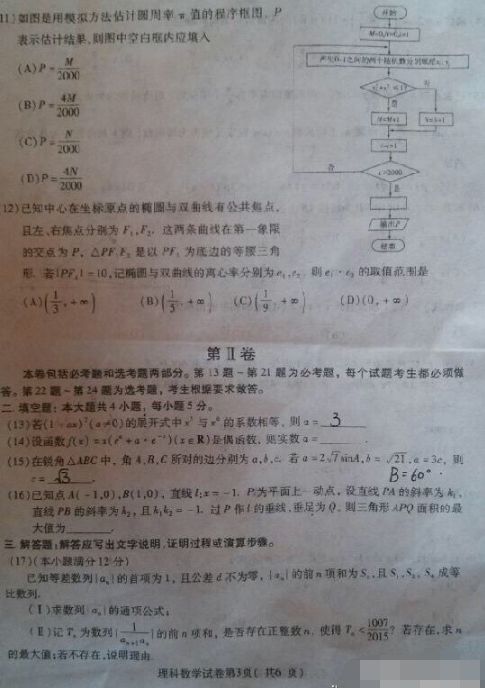 11)如图是用模拟方法估计圆周率π值的程序框图, P
表示估计结果,则图中空白框内应填入
(A) P = M/2000
(B) P = 4M/2000
(C) P = N/2000
(D) P = 4N/2000
开始
M=0,N=0,i=1
产生0~1之间的两个随机数分别赋给x₁,
是
否
M=M+1
N=N+1
i=i+1
i>2000
否
是
输出P
结束
12)已知中心在坐标原点的椭圆与双曲线有公共焦点,
且左,右焦点分别为 F₁, F₂. 这两条曲线在第一象限
的交点为 P, △PF₁F₂ 是以 PF₁ 为底边的等腰三角
形. 若|PF₁| = 10,记椭圆与双曲线的离心率分别为 e₁, e₂, 则 e₁·e₂ 的取值范围是
(A) (1/3, +∞) (B) (1/5, +∞) (C) (1/9, +∞) (D) (0, +∞)
第Ⅱ卷
本卷包括必考题和选考题两部分。第13题~第21题为必考题, 每个试题考生都必须做
答。第22题~第24题为选考题, 考生根据要求做答。
二. 填空题: 本大题共4小题, 每小题5分。
(13)若(1-ax)⁷(a≠0)的展开式中x⁵与x⁶的系数相等, 则a= 3
(14)设函数f(x)=x(eˣ+a·e⁻ˣ)(x∈R)是偶函数, 则实数a=
(15)在锐角△ABC中, 角A,B,C所对的边分别为a,b,c. 若a=2√7 sinA, b=√21, a=3c, 则
c= √3 . B=60°
(16)已知点A(-1,0), B(1,0), 直线l: x=-1. P为平面上一动点, 设直线PA的斜率为k₁,
直线PB的斜率为k₂, 且k₁k₂=-1. 过P作l的垂线, 垂足为Q, 则三角形APQ面积的最
大值为
三. 解答题: 解答应写出文字说明,证明过程或演算步骤。
(17)(本小题满分12分)
已知等差数列{aₙ}的首项为1, 且公差d不为零, {aₙ}的前n项和为Sₙ, 且S₁, S₂, S₄成等
比数列.
(Ⅰ)求数列{aₙ}的通项公式;
(Ⅱ)记Tₙ为数列{1/(aₙ₊₁aₙ)}的前n项和, 是否存在正整数n, 使得Tₙ<1007/2015? 若存在, 求n
的最大值; 若不存在,说明理由
理科数学试卷第3页( 共6 页)